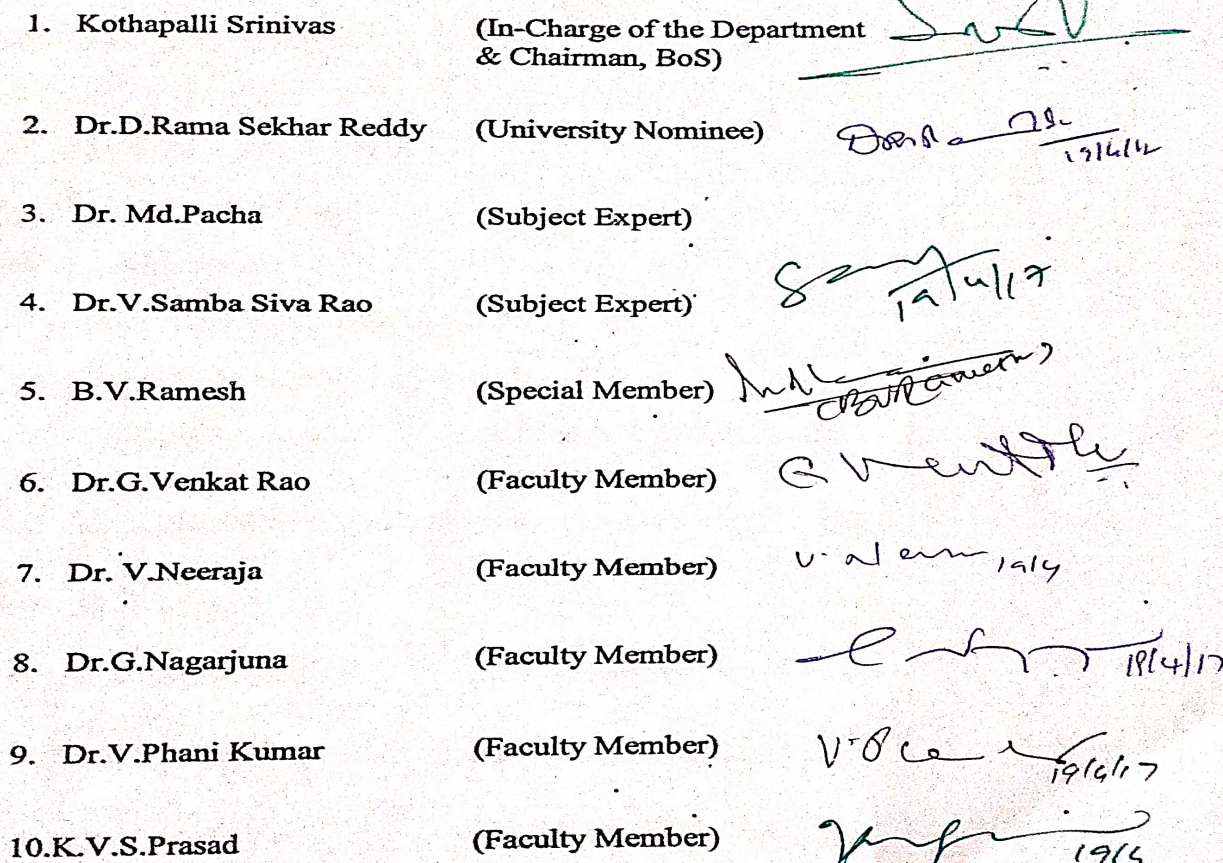 1. Kothapalli Srinivas (In-Charge of the Department
& Chairman, BoS)
2. Dr.D.Rama Sekhar Reddy (University Nominee)
3. Dr. Md.Pacha (Subject Expert)
4. Dr.V.Samba Siva Rao (Subject Expert)
19/4/17
5. B.V.Ramesh (Special Member)
6. Dr.G.Venkat Rao (Faculty Member)
7. Dr. V.Neeraja (Faculty Member) 19/4
8. Dr.G.Nagarjuna (Faculty Member) 19/4/17
9. Dr.V.Phani Kumar (Faculty Member) 19/4/17
10.K.V.S.Prasad (Faculty Member)